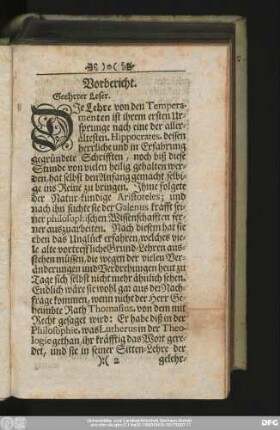 Vorbericht.
Geehrter Leser.
DIe Lehre von den Tempera-
menten ist ihrem ersten Ur-
sprunge nach eine der aller-
ältesten. Hippocrates, dessen
herrliche und in Erfahrung
gegründete Schrifften, noch biß diese
Stunde von vielen heilig gehalten wer-
den, hat selbst den Anfang gemacht selbi-
ge ins Reine zu bringen. Ihme folgete
der Natur-kündige Aristoteles; und
nach ihm suchte sie der Galenus krafft sei-
ner philosophischen Wissenschafften fer-
ner auszuarbeiten. Nach diesem hat sie
eben das Unglück erfahren, welches vie-
le alte vortreffliche Grund-Lehren aus-
stehen müssen, die wegen der vielen Ver-
änderungen und Verdrehungen heut zu
Tage sich selbst nicht mehr ähnlich sehen.
Endlich wäre sie wohl gar aus der Nach-
frage kommen, wenn nicht der Herr Ge-
heimbte Rath Thomasius, von dem mit
Recht gesaget wird: Er habe diß in der
Philosophie, was Lutherus in der Theo-
logie gethan, ihr kräfftig das Wort gere-
det, und sie in seiner Sitten-Lehre der
)( 2 gelehr-